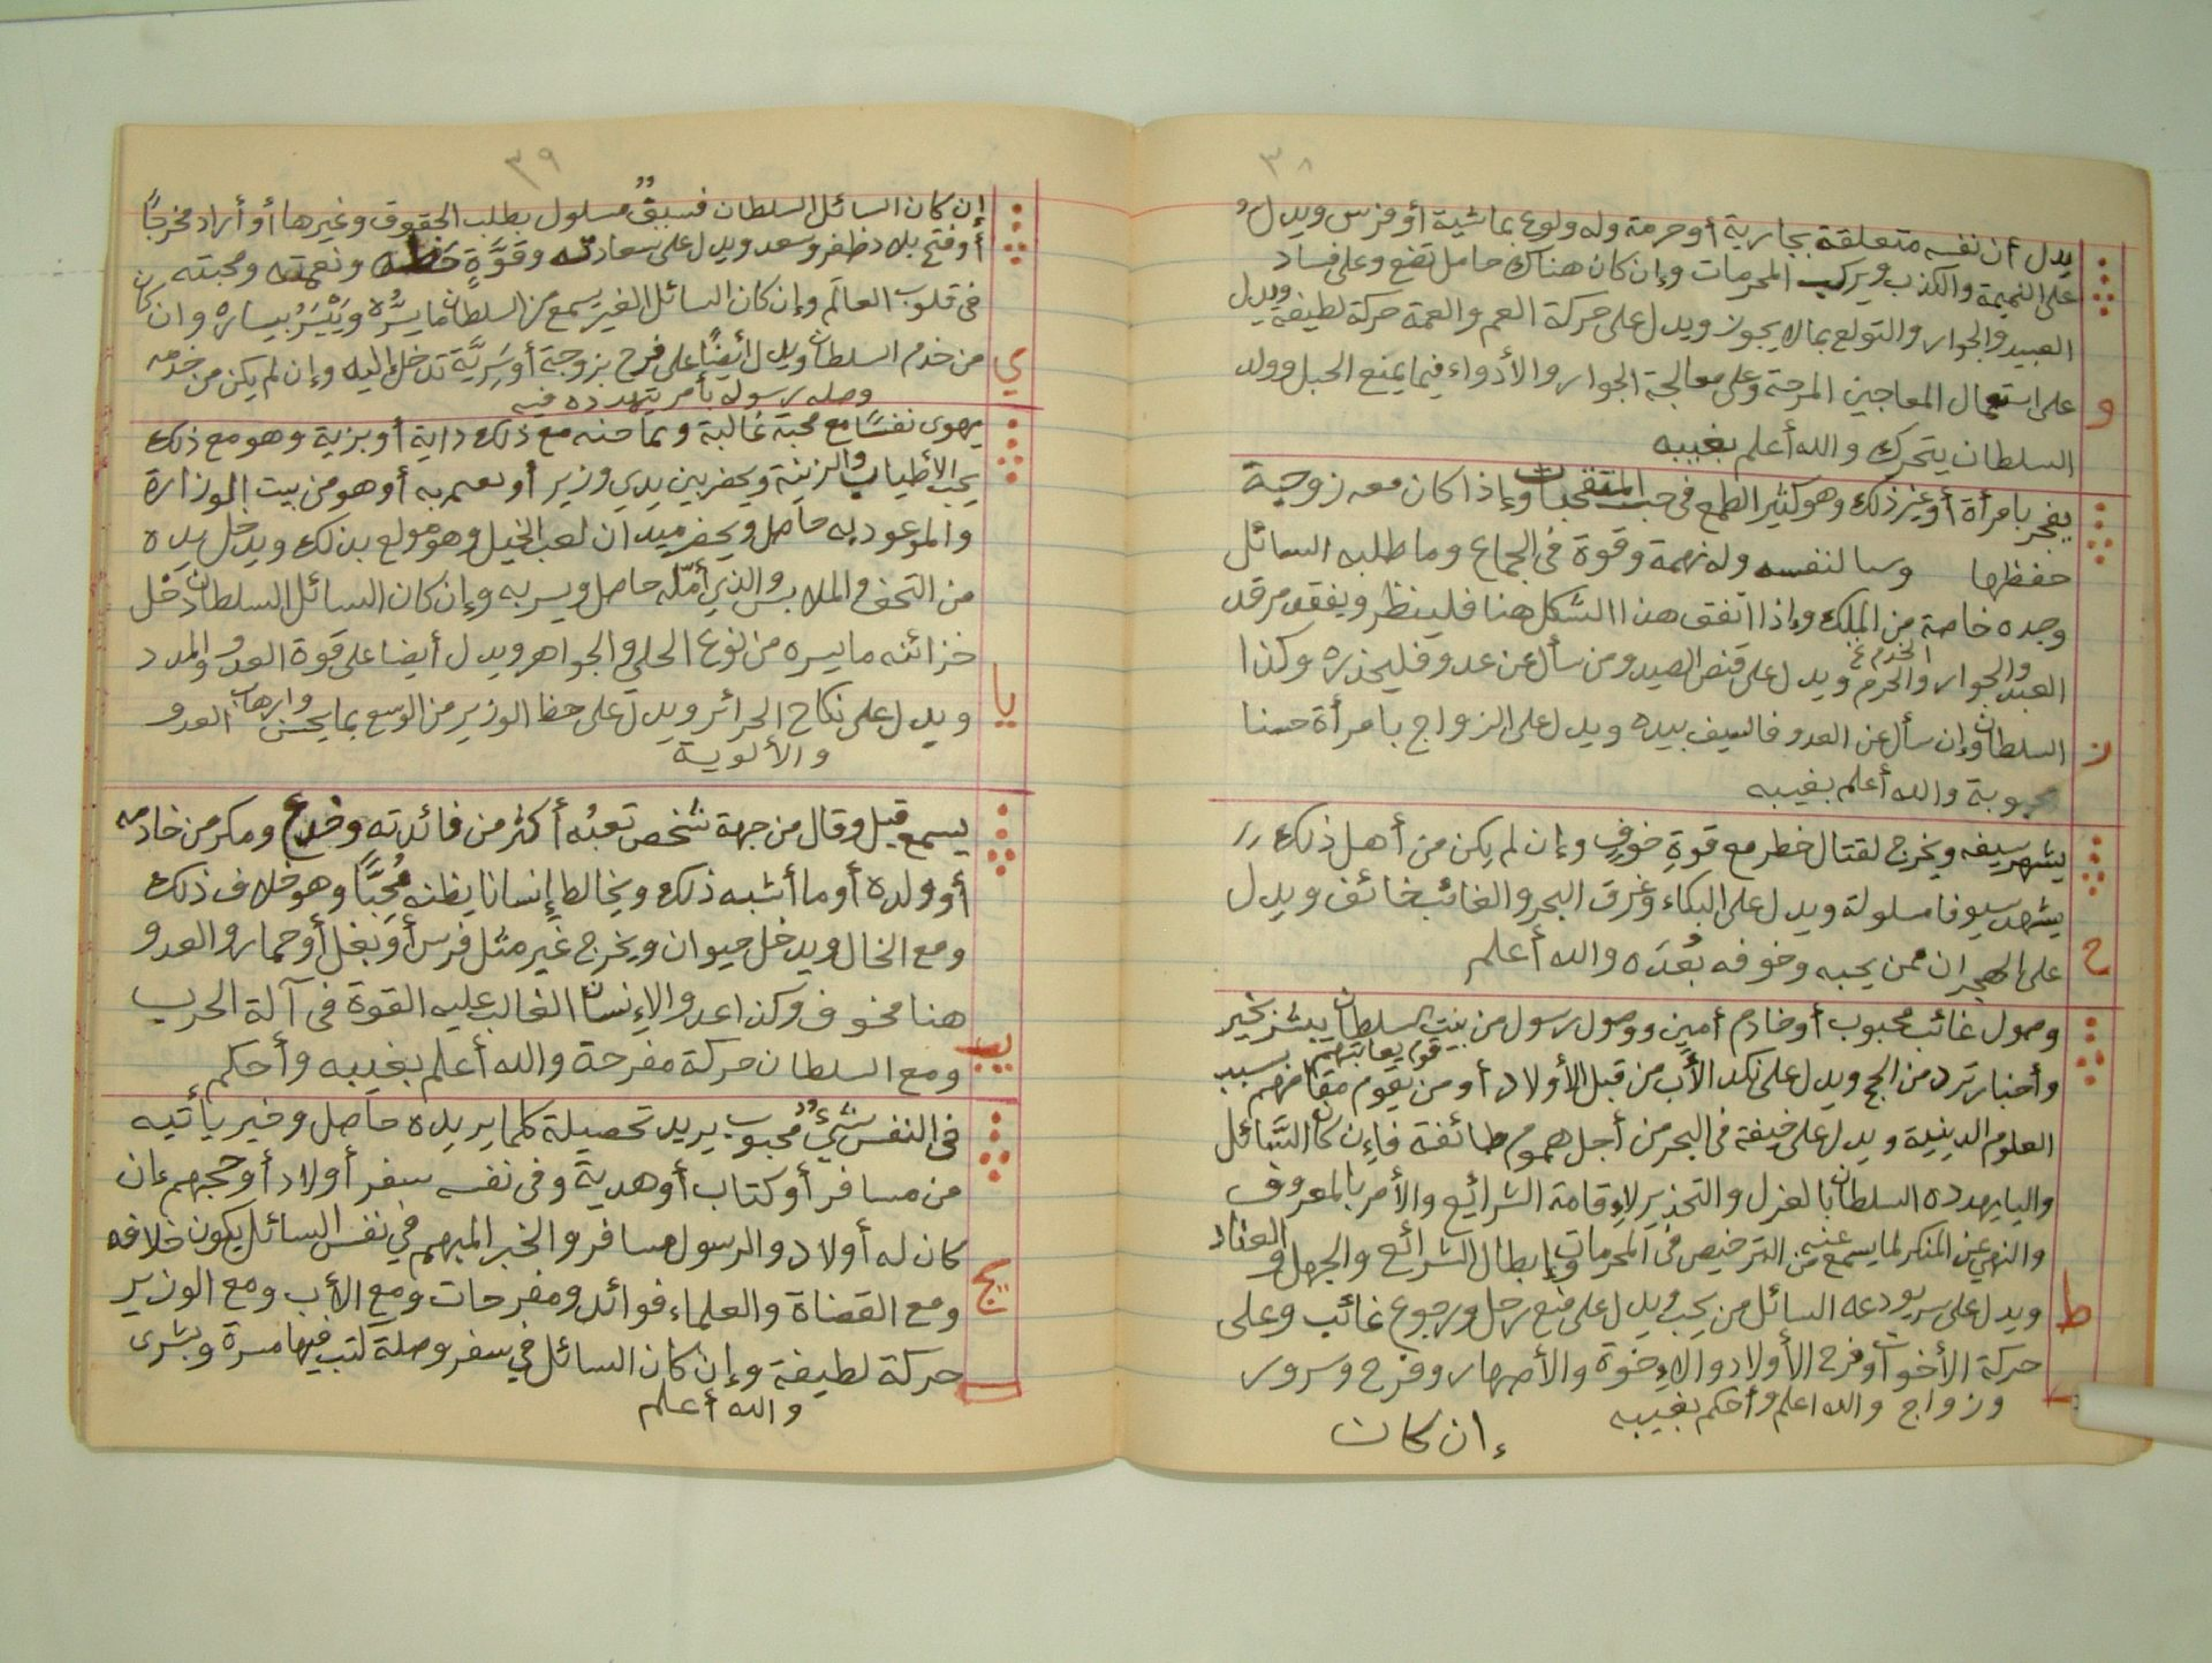 ٣٨
يدل أن نفسه متعلقة بجارية أو حرمة وله ولوع بماشية أو فرس ويدل
على النميمة والكذب ويركب المحرمات وإن كان هناك حامل تضع وعلى فساد
العبيد والجوار والتولع بما لا يجوز ويدل على حركة العم والعمة حركة لطيفة ويدل
و
على استعمال المعاجين المرحة وعلى معالجة الجوار والأدواء فيما يمنع الحبل وولد
السلطان يتحرك والله أعلم بغيبه
يفجر بامرأة أو غير ذلك وهو كثير الطمع في حب وإذا كان معه زوجية
حفظها لنفسه وله نهمة وقوة فى الجماع وما طلبه السائل
وجده خاصة من الملك وإذا اتفق هذا الشكل هنا فلينظر ويفقد مرقد
العبد والجوار والحرم ويدل على قنص الصيد ومن سأل عن عدو فليحذره وكذا
ز
السلطان وإن سأل عن العدو فالسيف بيده ويدل على الزواج بامرأة حسنا
والله أعلم بغيبه
يشهر سيفه ويخرج لقتال خطر مع قوةِ خوفٍ وإن لم يكن من أهل ذلك
يشهد سيوفا مسلولة ويدل على البكاء وغرق البحر والغائب خائف ويدل
ح
على الهجران ممن يحبه وخوفه بُعدَه والله أعلم
وصول غائب محبوب أو خادم أمين ووصول رسول من بيت السلطان يبشر بخير
وأخبار ترد من الحج ويدل على نكد الأب من قبل الأولاد أو من يقوم مقامهم بسبب
العلوم الدينية ويدل على خيفة فى البحر من أجل هموم طائفة فإن كان السَّائل
واليا يهدده السلطان بالعزل والتحذير لإقامة الشرايع والأمر بالمعروف
والنهي عن المنكر لما يسمع عنه من الترخيص فى المحرمات وإبطال الشرائع والجهل والعناد
ط
ويدل على سر يودعه السائل من يحب ويدل على ورجوع غائب وعلى
حركة الأخوات وفرح الأولاد والإخوة والأصهار وفرح وسرور
وزواج والله اعلم وأحكم بغيبه
إن كان
٣٩
إن كان السائل السلطان فسيفٌ مسلول بطلب الحقوق وغيرها أو أراد مخرجًا
أو فتح بلاد ظفر وسعد ويدل على سعادته وقوَّةِ حظه ونعمته ومحبته
فى قلوب العالَم وإن كان السائل الغير يسمع من السلطان ما يسُّره ويَتْيسَّرُ بيساره وان كان
ي
من خدم السلطان ويدل أيضًا على فرح بزوجة أو سَرِيَّة تدخل إليه وإن لم يكن من خدمه
وصله رسوله بأمر يتهدده فيه
يهوى نفسًا مع محبة غالبة وتماحنه مع ذلك داية أو بزية وهو مع ذلك
يحب الأطياب والزينة ويحضر بين يدي وزير أو هو من بيت الوزارة
والموعود به حاصل ويحضر ميدان لعب الخيل وهو مولع بذلك ويدخل يده
من التحف والملابس والذي أمّله حاصل ويسر به وإن كان السائل السلطان دخل
خزائنه ما يسره من نوع الحلي والجواهر ويدل أيضا على قوة العدو والمدد
يا
ويدل على نكاح الحرائر ويدل على حظ الوزير من الوسع بما يحسن وارهاب العدو
والألوية
يسمع قيل وقال من جهة شخص تعبُه أكثر من فائدته وخدع ومكر من خادمه
أو ولده أو ما أشبه ذلك ويخالط إنسانا يظنه مُحِبًّا وهو خلاف ذلك
ومع الخال ويدخل حيوان ويخرج غير مثل فرس أو بغل أو حمار والعدو
هنا مخوف وكذا عدو الإنسان الغالب عليه القوة فى آلة الحرب
يب
ومع السلطان حركة مفرحة والله أعلم بغيبه وأحكم
فى النفس شئٌ محبوب يريد تحصيلة كلما يريده حاصل وخير يأتيه
من مسافر أو كتاب أو هدية وفى نفسه سفر أولاد أو حجهم إن
كان له أولاد والرسول مسافر والخبر المبهم في نفس السائل يكون خلافه
يج
ومع القضاة والعلماء فوائد ومفرحات ومع الأب ومع الوزير
حركة لطيفة وإن كان السائل في سفر وصلة كتب فيها مسرة وبشرى
والله أعلم